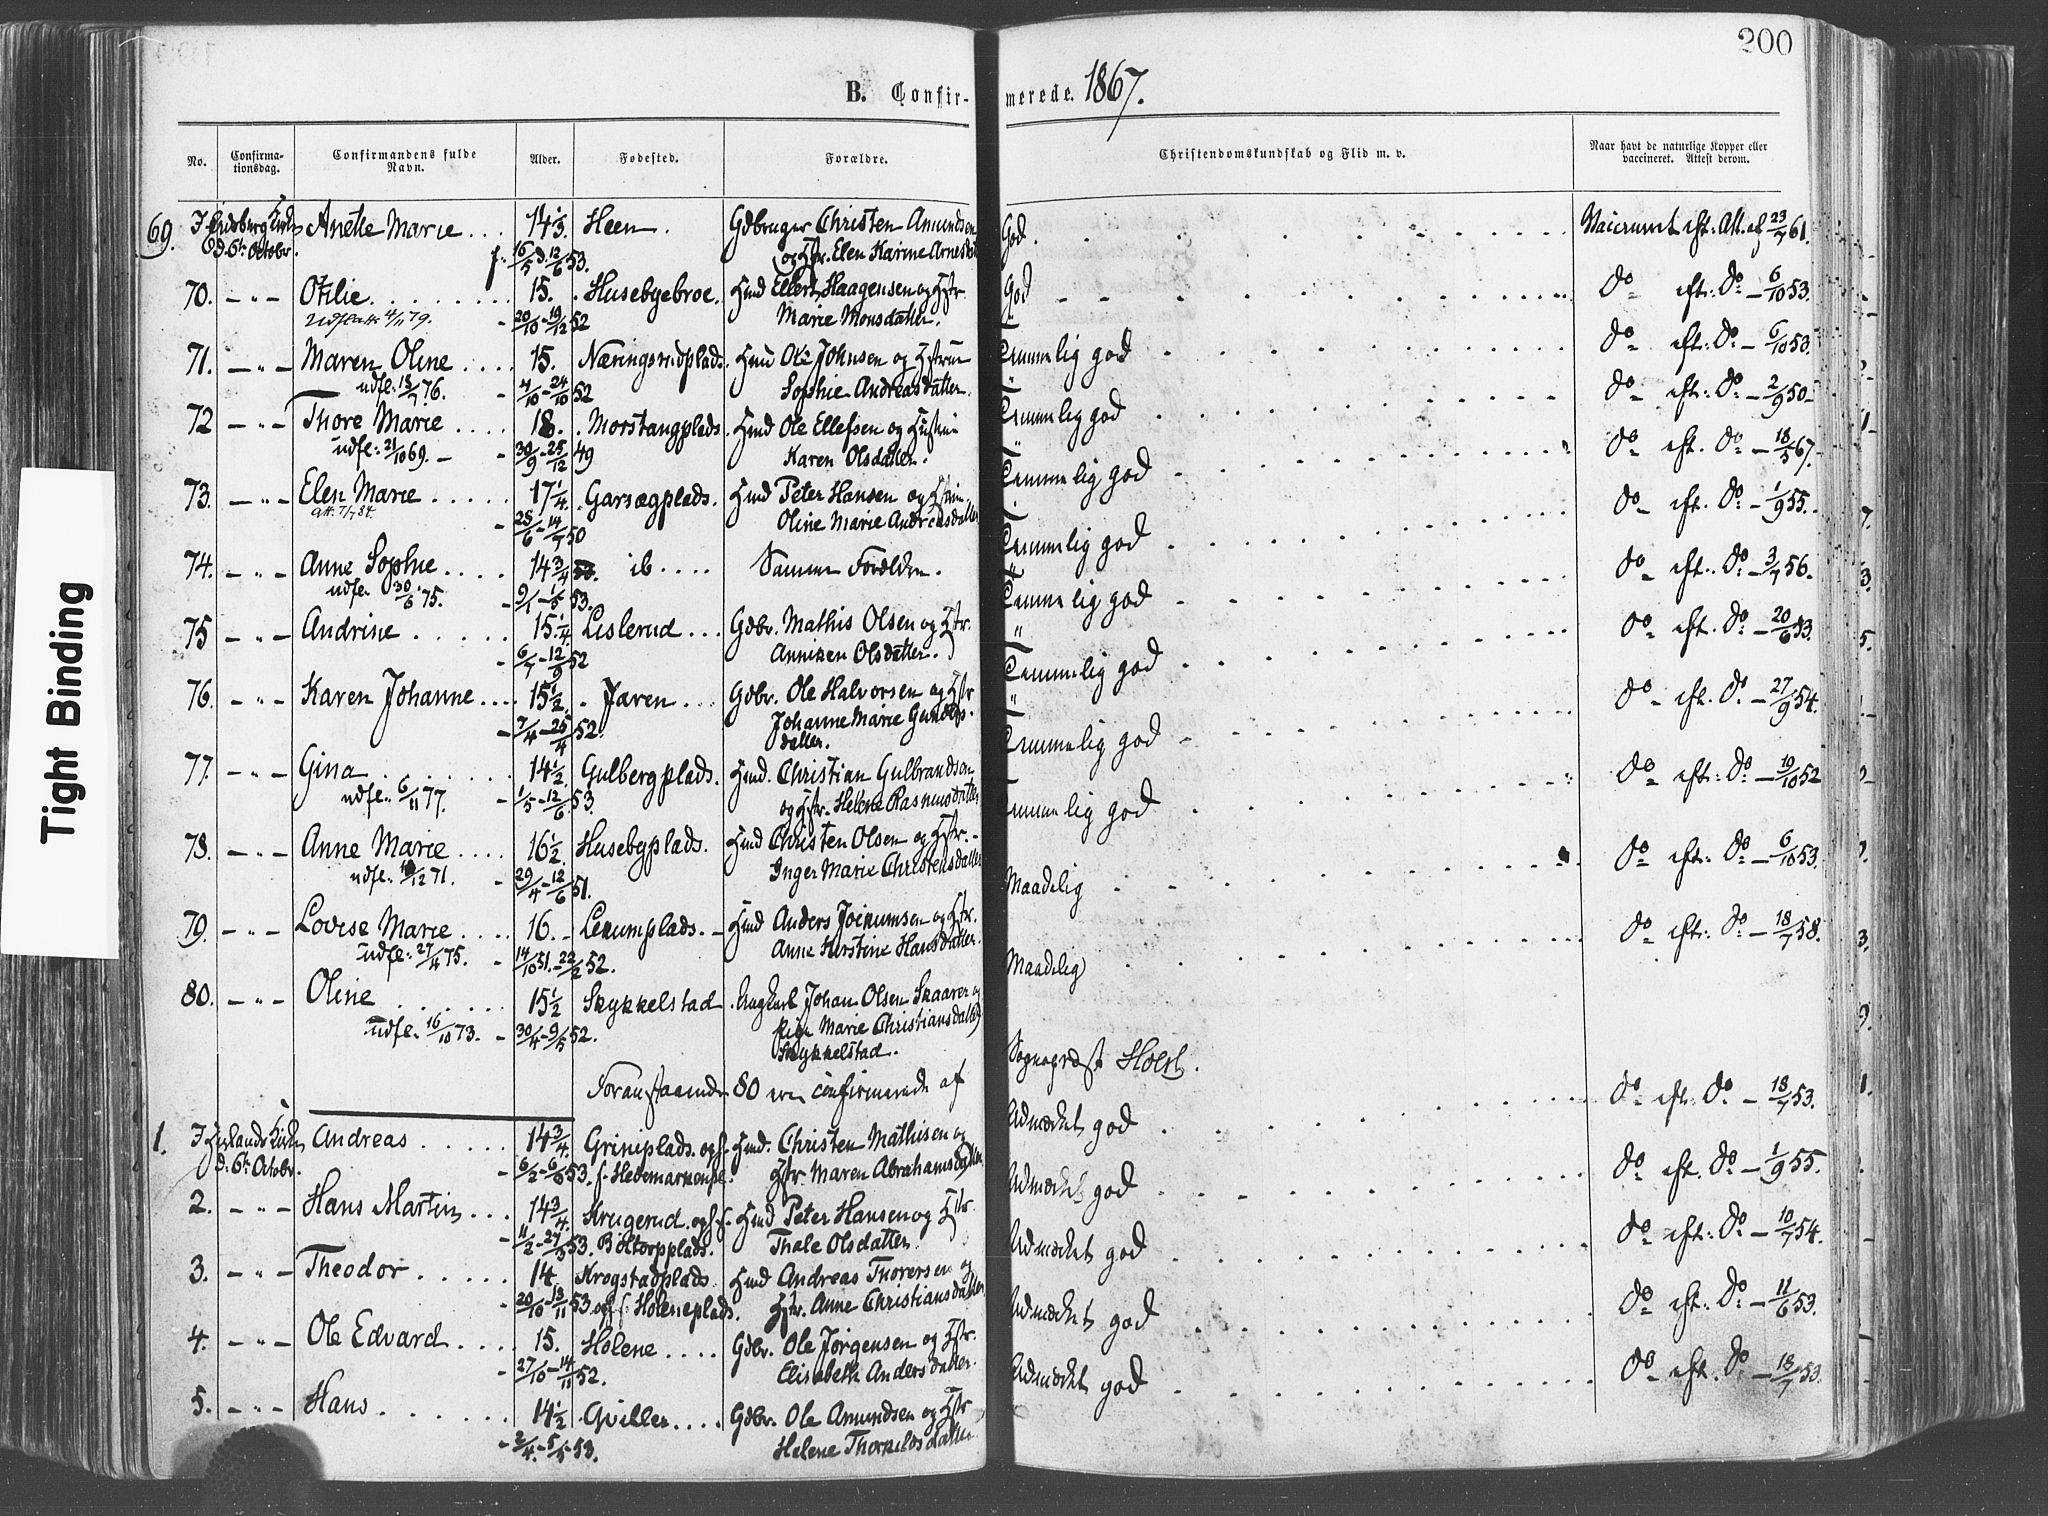 200
B. Confir- merede. 1867.
No. Confirma-tionsdag. Confirmandens fulde Navn. Alder. Fødested. Forældre. Christendomskundskab og Flid m. v. Naar havt de naturlige Kopper eller vaccineret. Attest derom.
69. I Kirke Anette Marie 14 1/3. Heen. Gdbruger Christen Amundsen God Att. af 23/7 61.
d. 6te Octobr. f. 16/5 d. 12/6 53. og Hstr. Elen Karine
70. – " – Otilie 15. Husebyebroe. Hmd Ellert Haagensen og Hstr God do eft: do – 6/10 53.
Udfl. att: 4/11 79. – 20/10 – 19/12 52 Marie Monsdatter.
71. – " – Maren Oline 15. Næringsrudplads. Hmd Ole Johnsen og Temmelig god do eft: do – 6/10 53.
udfl: 13/7 76. – 4/10 – 24/10 52 Sophie Andreasdatter.
72 – " – Thore Marie 18. Morstangplads. Hmd Ole Ellefsen og Hustru Temmelig god do eft: do – 2/9 50
udfl: 21/10 69. – 30/9 – 25/12 49 Karen Olsdatter.
73. – " – Elen Marie 17 1/4. Garsægplads. Hmd Peter Hansen og Temmelig god do eft. do – 18/5 67.
att. 7/7 84. – 25/6 – 14/7 50 Oline Marie Andreasdatter
74. – " – Anne Sophie 14 3/4 ib. Samme Forældre. Temmelig god do eft. do – 1/9 55.
udfl. 30/6 75. – 9/1 – 1/5 53.
75 – " – Andrine 15 1/4 Lislerud Gdbr. Mathis Olsen og Hstr. Temmelig god do eft: do – 3/7 56.
– 6/7 – 12/9 52 Anniken Olsdatter.
76. – " – Karen Johanne 15 1/2. Jaren. Gdbr. Ole Halvorsen og Hstr Temmelig god do eft. do – 20/6 53.
– 7/4 – 25/4 52. Johanne Marie
datter.
77. – " – Gina 14 1/2. Gulbergplads. Hmd. Christian Gulbrandsen Temmelig god do eft. do – 27/9 54.
udfl. 6/11 77. – 1/5 – 12/6 53. og Hstr. Helene Rasmusdatter
78. – " – Anne Marie 16 1/2. Husebyplads. Hmd Christen Olsen og Hstr. Temmelig god do eft: do – 19/10 52
udfl. 12 71. – 29/4 – 12/6 51. Inger Marie Christensdatter
79. – " – Lovise Marie 16. Lerumplads. Hmd Anders og Hstr. Maadelig do eft: do – 6/10 53.
udfl: 27/4 75. – 14/10 51. – 22/2 52. Anne Kirstine Hansdatter.
80. – " – Oline 15 1/2 Skykkelstad Ungkarl Johan Olsen Skaarer og Maadelig do eft: do – 18/7 58.
udfl. 16/10 73. – 30/4 – 9/5 52. Pige Marie Christiansdatter
Skykkelstad.
Foranstaaende 80 ere confirmerede af Sognepræst Holst.
1. I Kirke Andreas 14 3/4. Griniplads. Hmd. Christen Mathisen og Udmærket god do eft: do – 18/7 53.
d. 6te Octobr. – 6/2 – 53. Maren Abrahamsdatter.
2. – " – Hans Martin 14 3/4. Krugerud. Hmd Peter Hansen og Hstr. Udmærket god do eft. do – 1/9 55.
– 11/2 – 27/ 53. Thale Olsdatter
3. – " – Theodor 14. Krogstadplads Hmd Andreas Thorersen og Udmærket god do eft: do – 10/7 54.
– 20/10 – 13/11 53 Holeneplads. Hstr. Anne Christiansdatter
4. – " – Ole Edvard 15. Holene Gdbr. Ole Jørgensen og Hstr. Udmærket god do eft: do – 11/6 53.
– 27/10 – 14/11 52. Elisabeth Andersdatter.
5. – " – Hans 14 1/2 Gviller Gdbr. Ole Amundsen og Hstr Udmærket god do eft. do – 18/7 53.
– 2/4. – 5/5 – 53. Helene Thorkildsdatter
Tight Binding